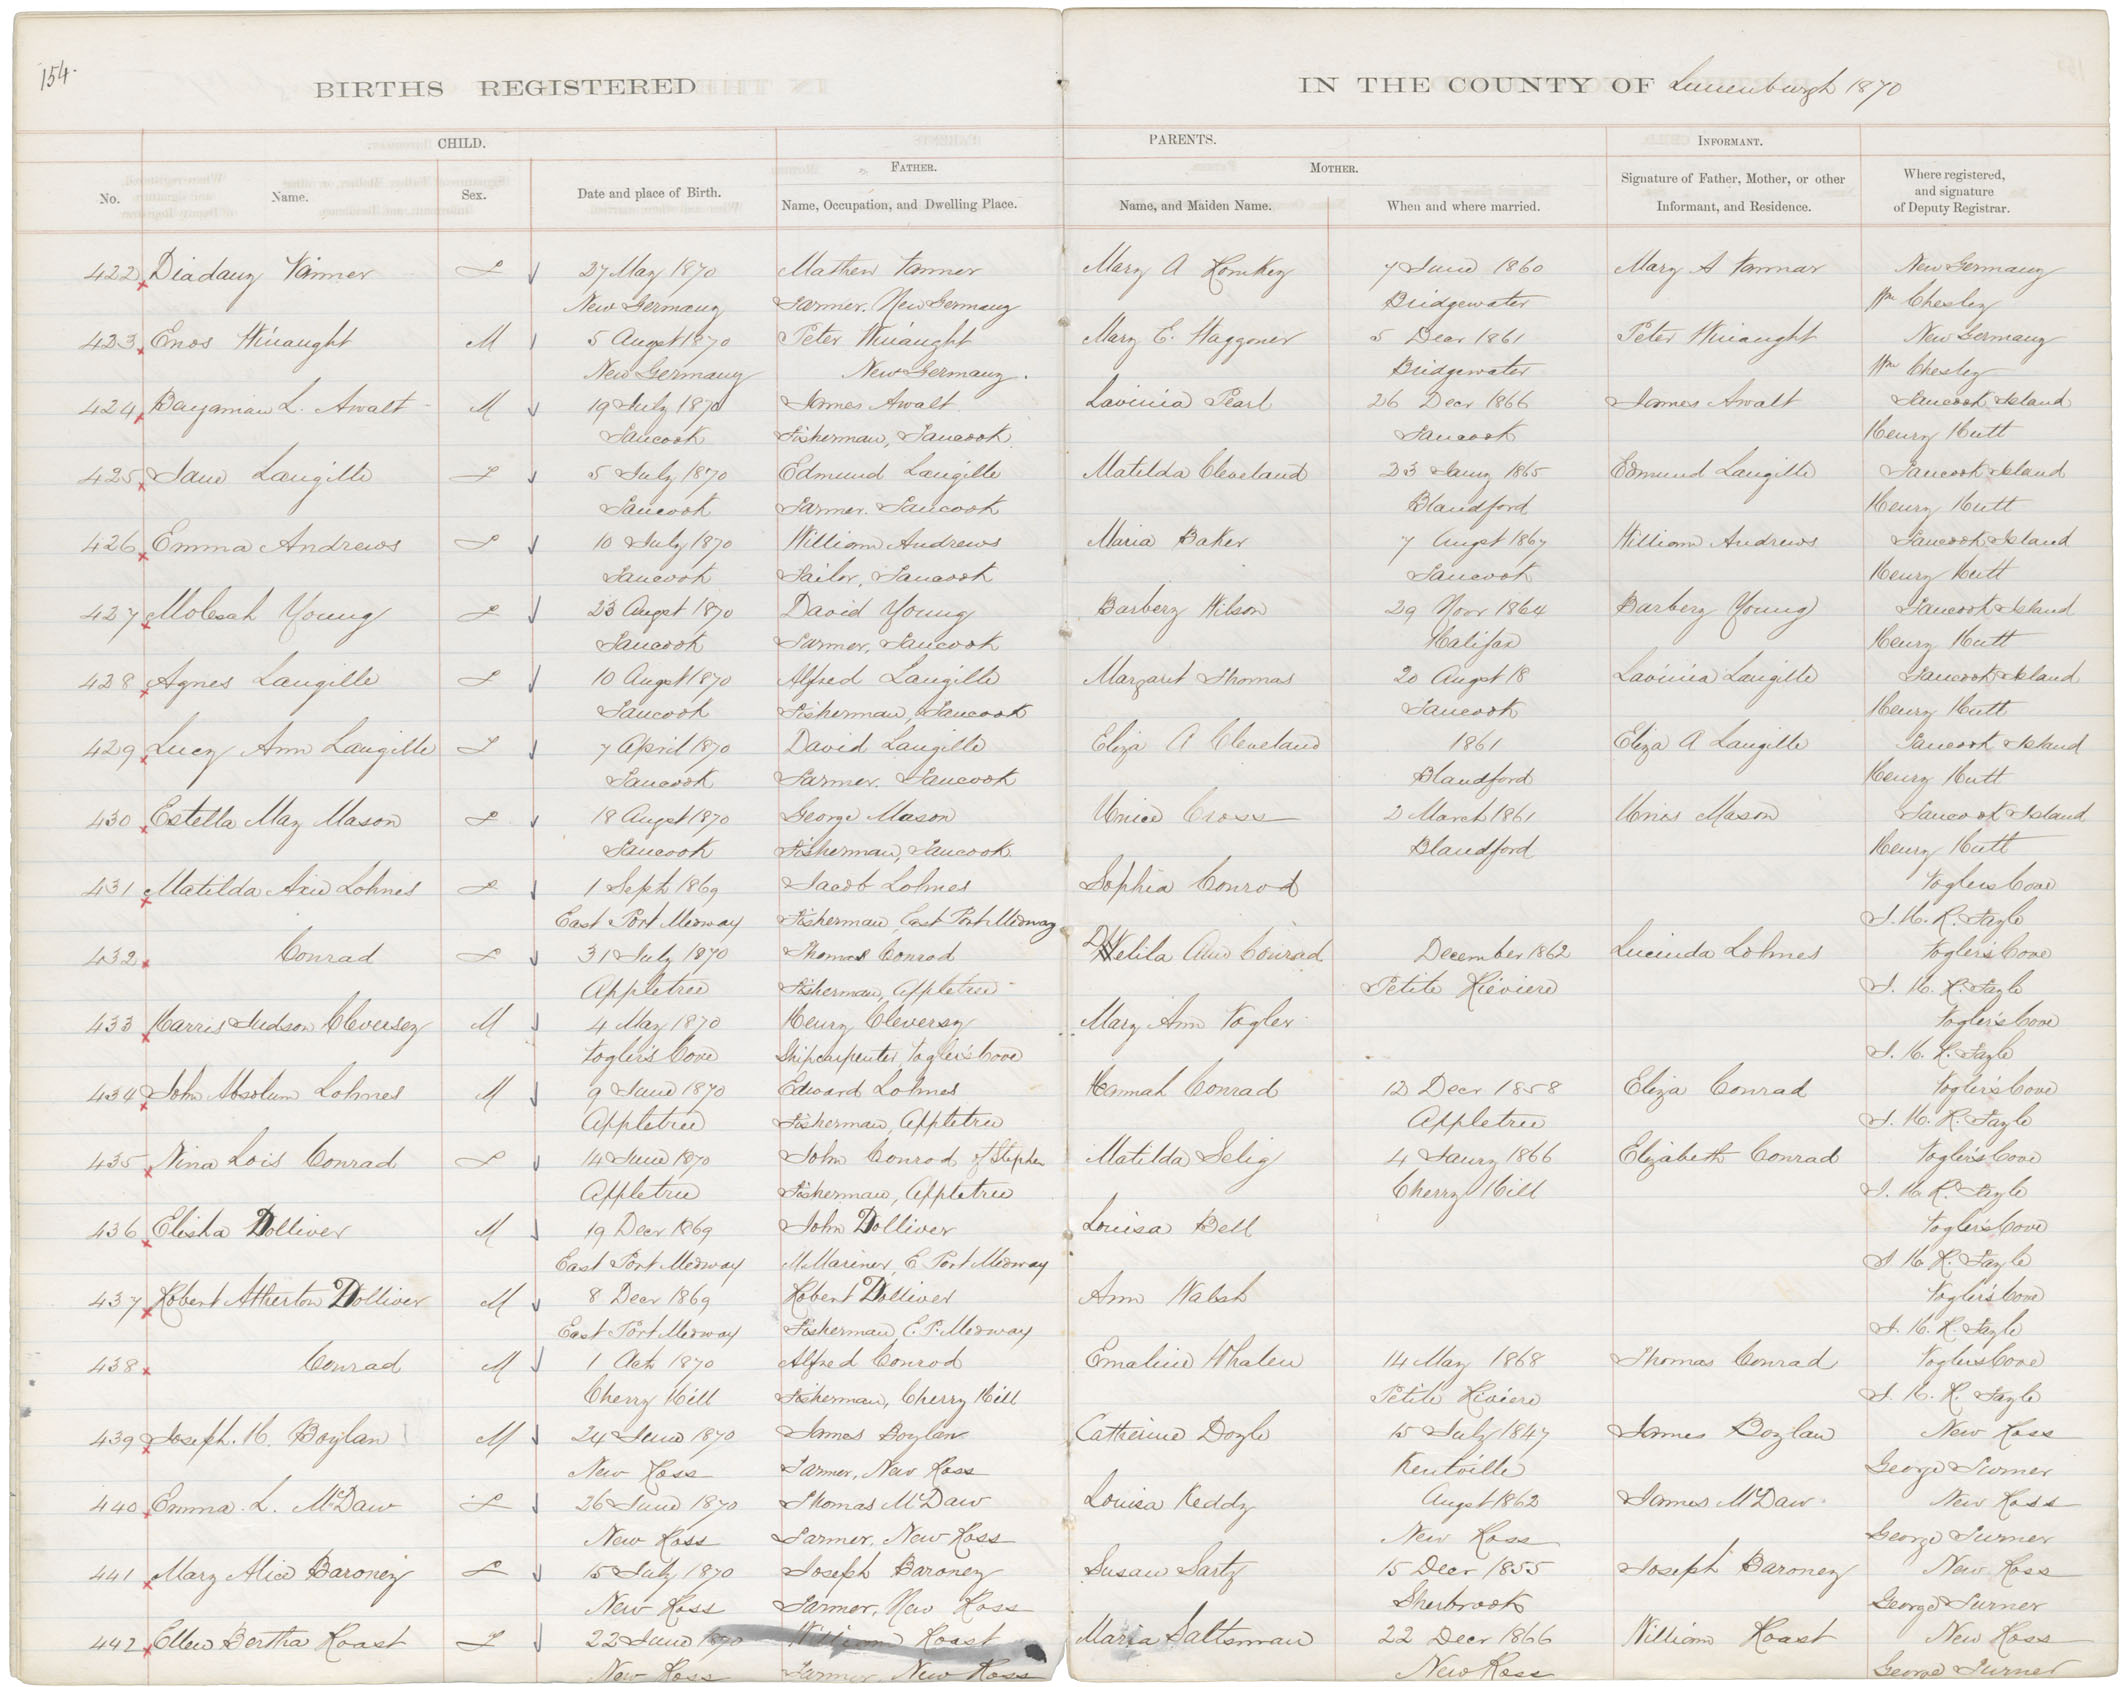 154.
BIRTHS REGISTERED IN THE COUNTY OF Lunenburgh 1870
CHILD. PARENTS. INFORMANT.
FATHER. MOTHER.
No. Name. Sex. Date and place of Birth. Name, Occupation, and Dwelling Place. Name, and Maiden Name. When and where married. Signature of Father, Mother, or other Informant, and Residence. Where registered, and signature of Deputy Registrar.
422 Diadany Tanner F 27 May 1870 Mathew Tanner Mary A 7 June 1860 Mary A Tannar New Germany
New Germany Farmer. New Germany Bridgewater Wm Chesley
423 Enos Winaught M 5 Augst 1870 Peter Winaught Mary E. Waggoner 5 Decr 1861 Peter Winaught New Germany
New Germany New Germany. Bridgewater Wm Chesley
424 Benjamian L. Awalt M 19 July 1870 James Awalt Lavinia Pearl 26 Decr 1866 James Awalt Tancook Island
Tancook Fisherman, Tancook Tancook Henry Hutt
425 Jane Langille F 5 July 1870 Edmund Langille Matilda Cleveland 23 Jany 1865 Edmund Langille Tancook Island
Tancook Farmer. Tancook Blandford Henry Hutt
426 Emma Andrews F 10 July 1870 William Andrews Maria Baker 7 Augst 1867 William Andrews Tancook Island
Tancook Sailor, Tancook Tancook Henry Hutt
427 Young F 23 Augst 1870 David Young Barbery Wilson 29 Novr 1864 Barbery Young Tancook Island
Tancook Farmer, Tancook Halifax Henry Hutt
428 Agnes Langille F 10 Augst 1870 Alfred Langille Margaret Thomas 20 Augst 18 Lavinia Langille Tancook Island
Tancook Fisherman, Tancook Tancook Henry Hutt
429 Lucy Ann Langille F 7 April 1870 David Langille Eliza A Cleveland 1861 Eliza A Langille Tancook Island
Tancook Farmer. Tancook Blandford Henry Hutt
430 Estella May Mason F 18 Augst 1870 George Mason Unice Cross 2 March 1861 Unis Mason Tancook Island
Tancook Fisherman, Tancook Blandford Henry Hutt
431 Matilda Lohnes F 1 Sept 1869 Jacob Lohnes Sophia Conrod Voglers Cove
East Port Medway Fisherman, East Port Medway J. H. R. Fayle
432 Conrad F 31 July 1870 Thomas Conrad Delila Ann Conrad December 1862 Lucinda Lohnes Vogler's Cove
Appletree Fisherman, Appletree Petite Rieviere J. H. R. Fayle
433 Harris Judson Cleversey M 4 May 1870 Henry Cleversy Mary Ann Vogler Vogler's Cove
Vogler's Cove Shipcarpenter, Vogler's Cove J. H. R. Fayle
434 John Absolum Lohnes M 9 June 1870 Edward Lohnes Hannah Conrad 12 Decr 1858 Eliza Conrad Vogler's Cove
Appletree Fisherman, Appletree Appletree J. H. R. Fayle
435 Nina Lois Conrad F 14 June 1870 John Conrod of Stephen Matilda Selig 4 Jany 1866 Elizabeth Conrad Vogler's Cove
Appletree Fisherman, Appletree Cherry Hill J. H. R. Fayle
436 Elisha Dolliver M 19 Decr 1869 John Dolliver Louisa Bell Vogler's Cove
East Port Medway M Mariner, E Port Medway J. H. R. Fayle
437 Robert Atherton Dolliver M 8 Decr 1869 Robert Dolliver Ann Walsh Vogler's Cove
East Port Medway Fisherman, E. P. Medway J. H. R. Fayle
438 Conrad M 1 Oct 1870 Alfred Conrod Emaline Whalen 14 May 1868 Thomas Conrad Vogler's Cove
Cherry Hill Fisherman, Cherry Hill Petite Riviere J. H. R. Fayle
439 Joseph. H. Boylan M 24 June 1870 James Boylan Catherine Doyle 15 July 1847 James Boylan New Ross
New Ross Farmer, New Ross Kentville George Turner
440 Emma. L. McDaw F 26 June 1870 Thomas McDaw Louisa Keddy Augst 1862 James McDaw New Ross
New Ross Farmer, New Ross New Ross George Turner
441 Mary Alice Baroney F 15 July 1870 Joseph Baroney Susan Sartz 15 Decr 1855 Joseph Baroney New Ross
New Ross Farmer, New Ross Sherbrook George Turner
442 Ellen Bertha Roast F 22 June 1870 William Roast Maria Saltsman 22 Decr 1866 William Roast New Ross
New Ross Farmer, New Ross New Ross George Turner